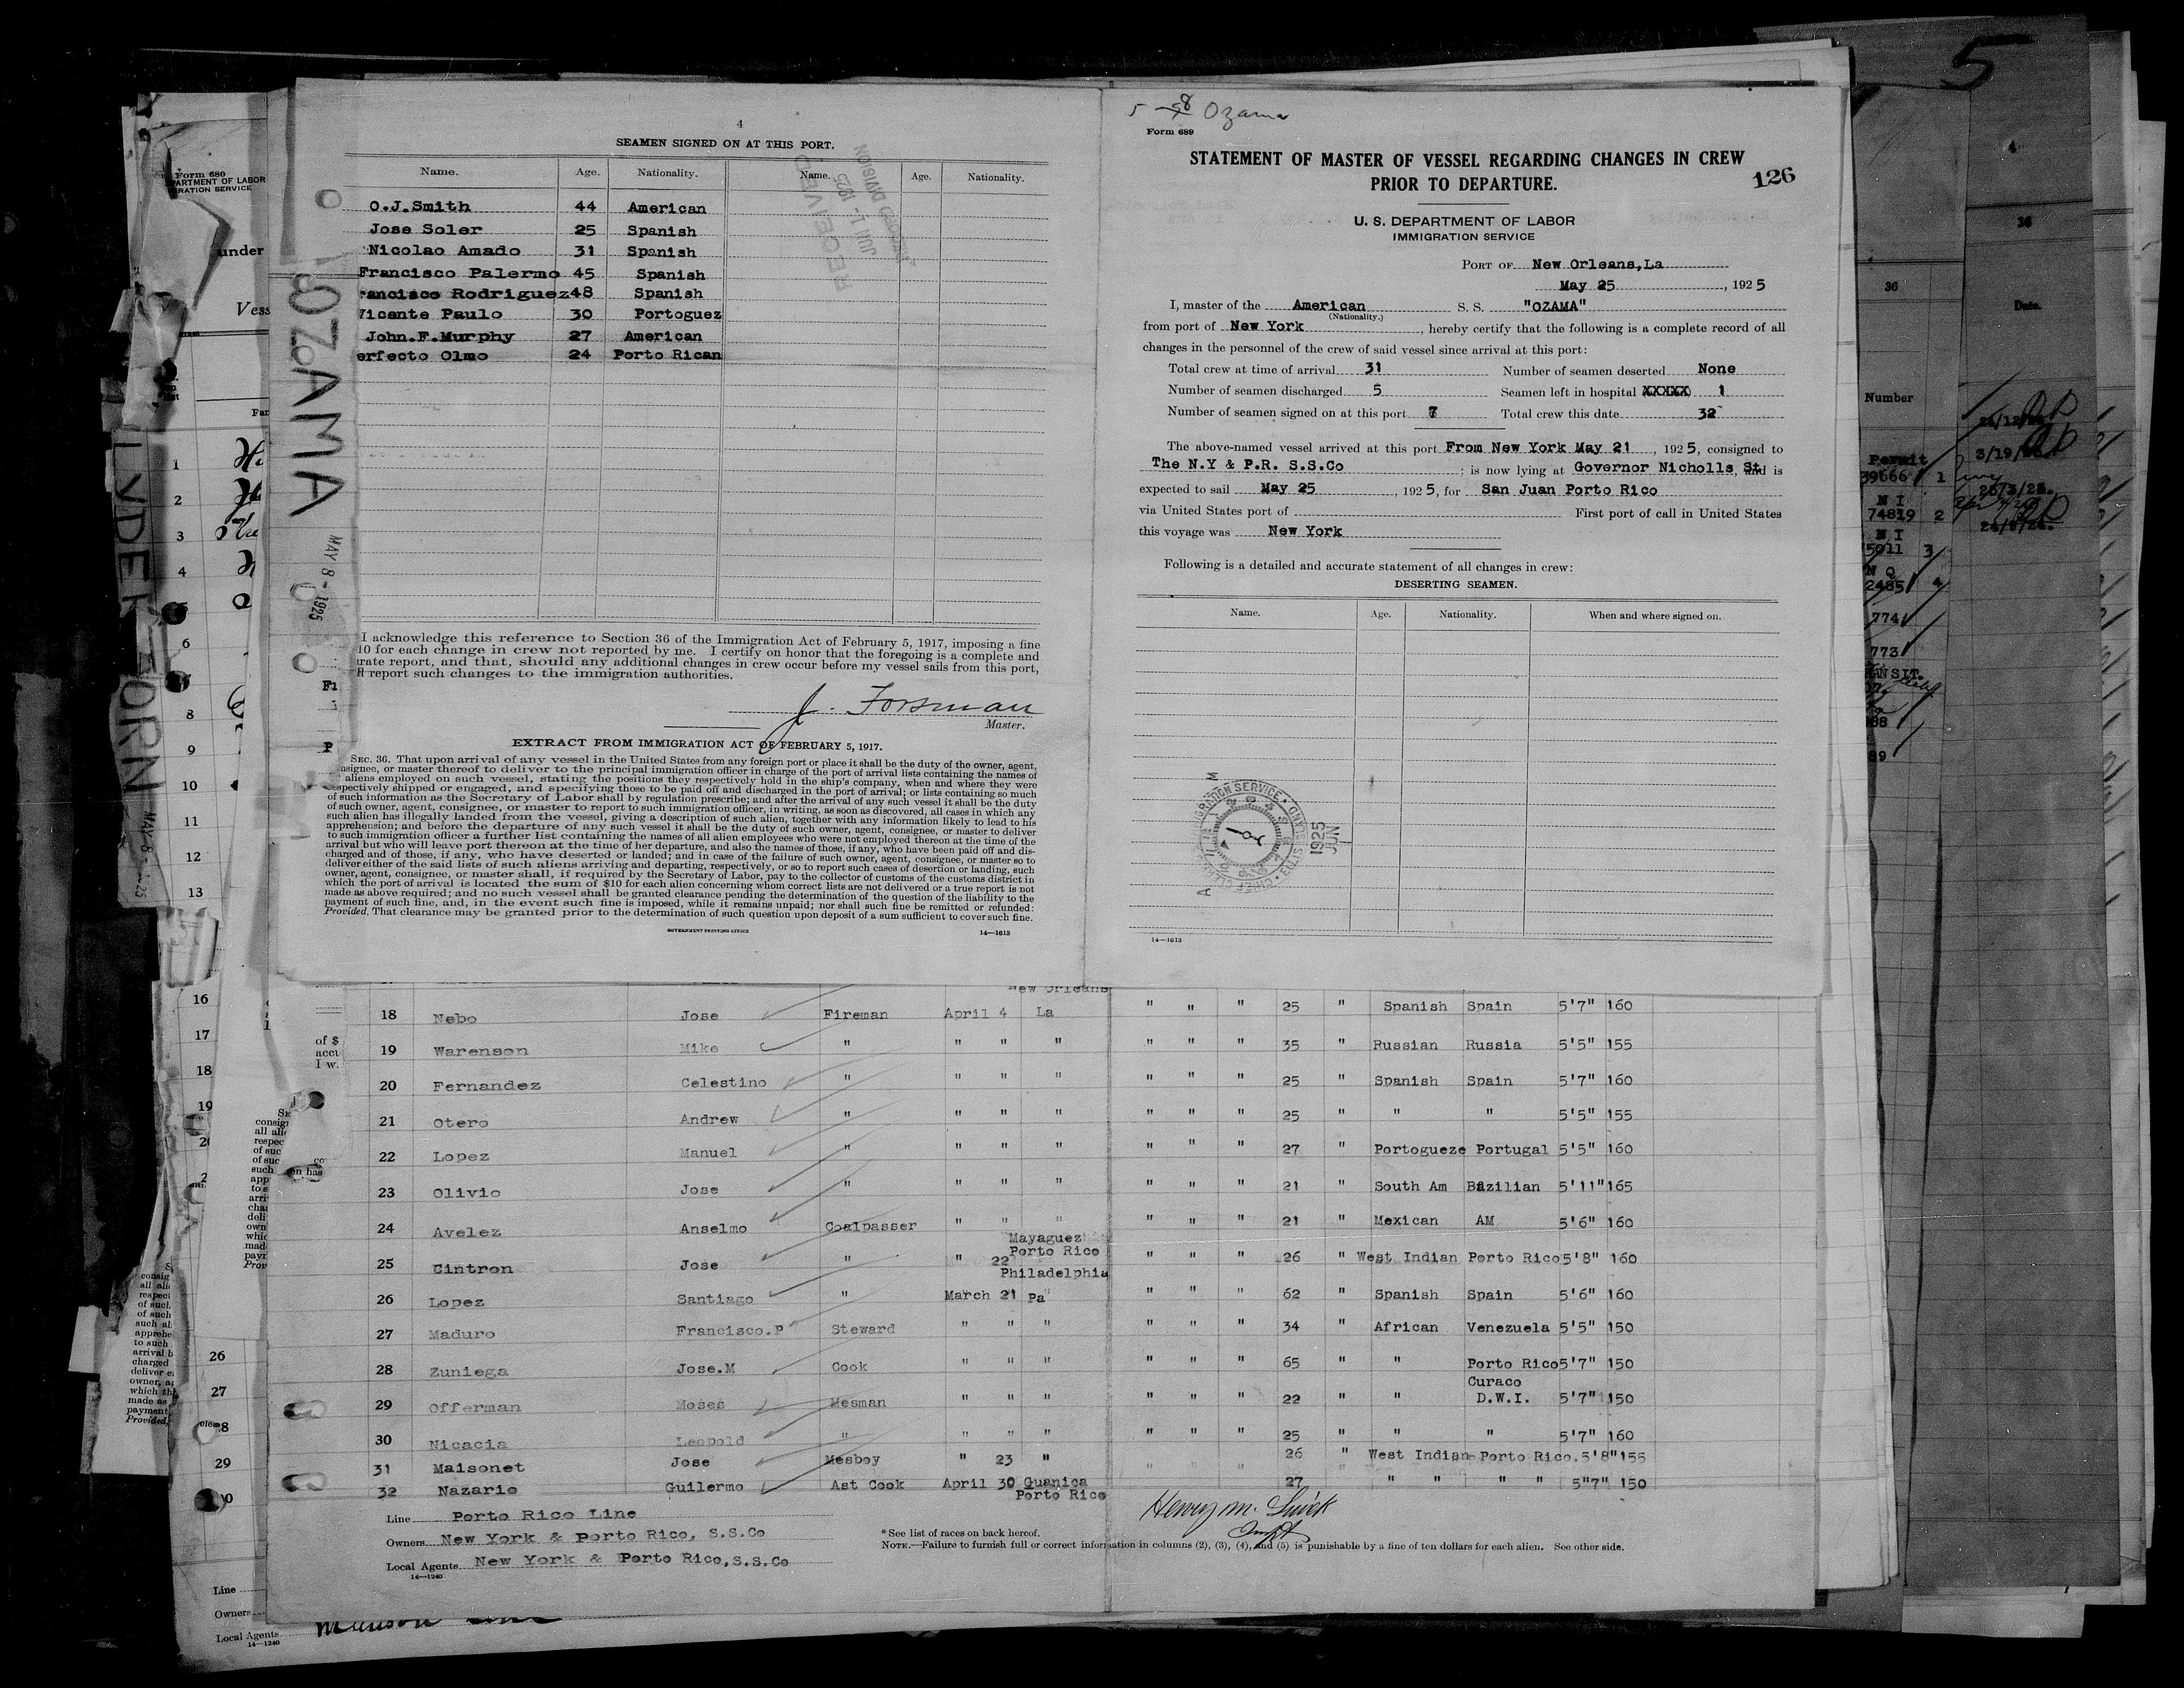 4
SEAMEN SIGNED ON AT THIS PORT.
Name. Age. Nationality. Name. Age. Nationality.
O.J.Smith 44 American
Jose Soler 25 Spanish
Nicolao Amado 31 Spanish
Francisco Palermo 45 Spanish
rancisco Rodriguez 48 Spanish
Vicente Paulo 30 Portoguez
John.F.Murphy 27 American
erfecto Olmo 24 Porto Rican
RECEIVED
JUN 1 - 1925
RECORD DIVISION
OZAMA
MAY 8 - 1925
I acknowledge this reference to Section 36 of the Immigration Act of February 5, 1917, imposing a fine
10 for each change in crew not reported by me. I certify on honor that the foregoing is a complete and
rate report, and that, should any additional changes in crew occur before my vessel sails from this port,
report such changes to the immigration authorities.
J. Forsman
Master.
EXTRACT FROM IMMIGRATION ACT OF FEBRUARY 5, 1917.
SEC. 36. That upon arrival of any vessel in the United States from any foreign port or place it shall be the duty of the owner, agent,
nsignee, or master thereof to deliver to the principal immigration officer in charge of the port of arrival lists containing the names of
aliens employed on such vessel, stating the positions they respectively hold in the ship's company, when and where they were
espectively shipped or engaged, and specifying those to be paid off and discharged in the port of arrival; or lists containing so much
of such information as the Secretary of Labor shall by regulation prescribe; and after the arrival of any such vessel it shall be the duty
of such owner, agent, consignee, or master to report to such immigration officer, in writing, as soon as discovered, all cases in which any
such alien has illegally landed from the vessel, giving a description of such alien, together with any information likely to lead to his
apprehension; and before the departure of any such vessel it shall be the duty of such owner, agent, consignee, or master to deliver
to such immigration officer a further list containing the names of all alien employees who were not employed thereon at the time of the
arrival but who will leave port thereon at the time of her departure, and also the names of those, if any, who have been paid off and dis-
charged and of those, if any, who have deserted or landed; and in case of the failure of such owner, agent, consignee, or master so to
deliver either of the said lists of such aliens arriving and departing, respectively, or so to report such cases of desertion or landing, such
owner, agent, consignee, or master shall, if required by the Secretary of Labor, pay to the collector of customs of the customs district in
which the port of arrival is located the sum of $10 for each alien concerning whom correct lists are not delivered or a true report is not
made as above required; and no such vessel shall be granted clearance pending the determination of the question of the liability to the
payment of such fine, and, in the event such fine is imposed, while it remains unpaid; nor shall such fine be remitted or refunded:
Provided, That clearance may be granted prior to the determination of such question upon deposit of a sum sufficient to cover such fine.
GOVERNMENT PRINTING OFFICE 14—1613
Ozama
Form 689
STATEMENT OF MASTER OF VESSEL REGARDING CHANGES IN CREW
PRIOR TO DEPARTURE.
126
U. S. DEPARTMENT OF LABOR
IMMIGRATION SERVICE
PORT OF New Orleans,La
May 25, 1925
I, master of the American S. S. "OZAMA"
(Nationality.)
from port of New York, hereby certify that the following is a complete record of all
changes in the personnel of the crew of said vessel since arrival at this port:
Total crew at time of arrival 31 Number of seamen deserted None
Number of seamen discharged 5 Seamen left in hospital XXXXX 1
Number of seamen signed on at this port 7 Total crew this date 32
The above-named vessel arrived at this port From New York May 21, 1925, consigned to
The N.Y & P.R. S.S.Co; is now lying at Governor Nicholls St and is
expected to sail May 25, 1925, for San Juan Porto Rico
via United States port of First port of call in United States
this voyage was New York
Following is a detailed and accurate statement of all changes in crew:
DESERTING SEAMEN.
Name. Age. Nationality. When and where signed on.
IMMIGRATION SERVICE
1925
JUN
14—1613
New Orleans
18 Nebo Jose Fireman April 4 La " " " 25 " Spanish Spain 5'7" 160
19 Warenson Mike " " " " " " " 35 " Russian Russia 5'5" 155
20 Fernandez Celestino " " " " " " " 25 " Spanish Spain 5'7" 160
21 Otero Andrew " " " " " " " 25 " " " 5'5" 155
22 Lopez Manuel " " " " " " " 27 " Portogueze Portugal 5'5" 160
23 Olivio Jose " " " " " " " 21 " South Am Bazilian 5'11" 165
24 Avelez Anselmo Coalpasser " " " " " " 21 " Mexican AM 5'6" 160
Mayaguez
25 Cintron Jose " " 22 Porto Rico " " " 26 " West Indian Porto Rico 5'8" 160
Philadelphia
26 Lopez Santiago " March 21 Pa " " " 62 " Spanish Spain 5'6" 160
27 Maduro Francisco.P Steward " " " " " " 34 " African Venezuela 5'5" 150
28 Zuniega Jose.M Cook " " " " " " 65 " " Porto Rico 5'7" 150
Curaco
29 Offerman Moses Mesman " " " " " " 22 " " D.W.I. 5'7" 150
30 Nicacia Leopold " " " " " " " 25 " " " 5'7" 160
31 Maisonet Jose Mesboy " 23 " " " " 26 " West Indian Porto Rico. 5'8" 155
32 Nazario Guilermo Ast Cook April 30 Guanica 27 " " " " 5"7" 150
Porto Rico
Line Porto Rico Line
Owners New York & Porto Rico, S.S.Co
Local Agents New York & Porto Rico, S.S.Co
14—1240
*See list of races on back hereof.
NOTE.—Failure to furnish full or correct information in columns (2), (3), (4), and (5) is punishable by a fine of ten dollars for each alien. See other side.
Form 680
under
1
2
3
4
6
8
9
10
11
12
13
16
17
18
19
26
27
29
Line
Owners
Local Agents
14—1240
5
4
36
36
Date.
Number
Permit
39666 1
N I
74819 2
N I
5011 3
N Q
2485 4
774
773
3/19/